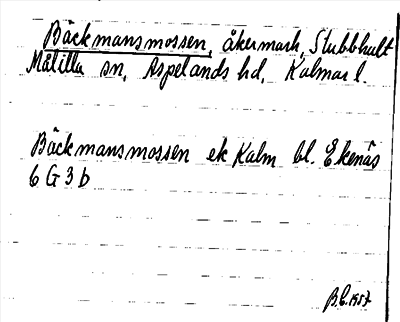 Bäckmansmossen, åkermark, Slubbhult
Målilla sn, Aspelands hd, Kalmar l.
Bäckmansmossen ek Kalm bl. Ekenäs
6 G 3 b
B.E. 1957